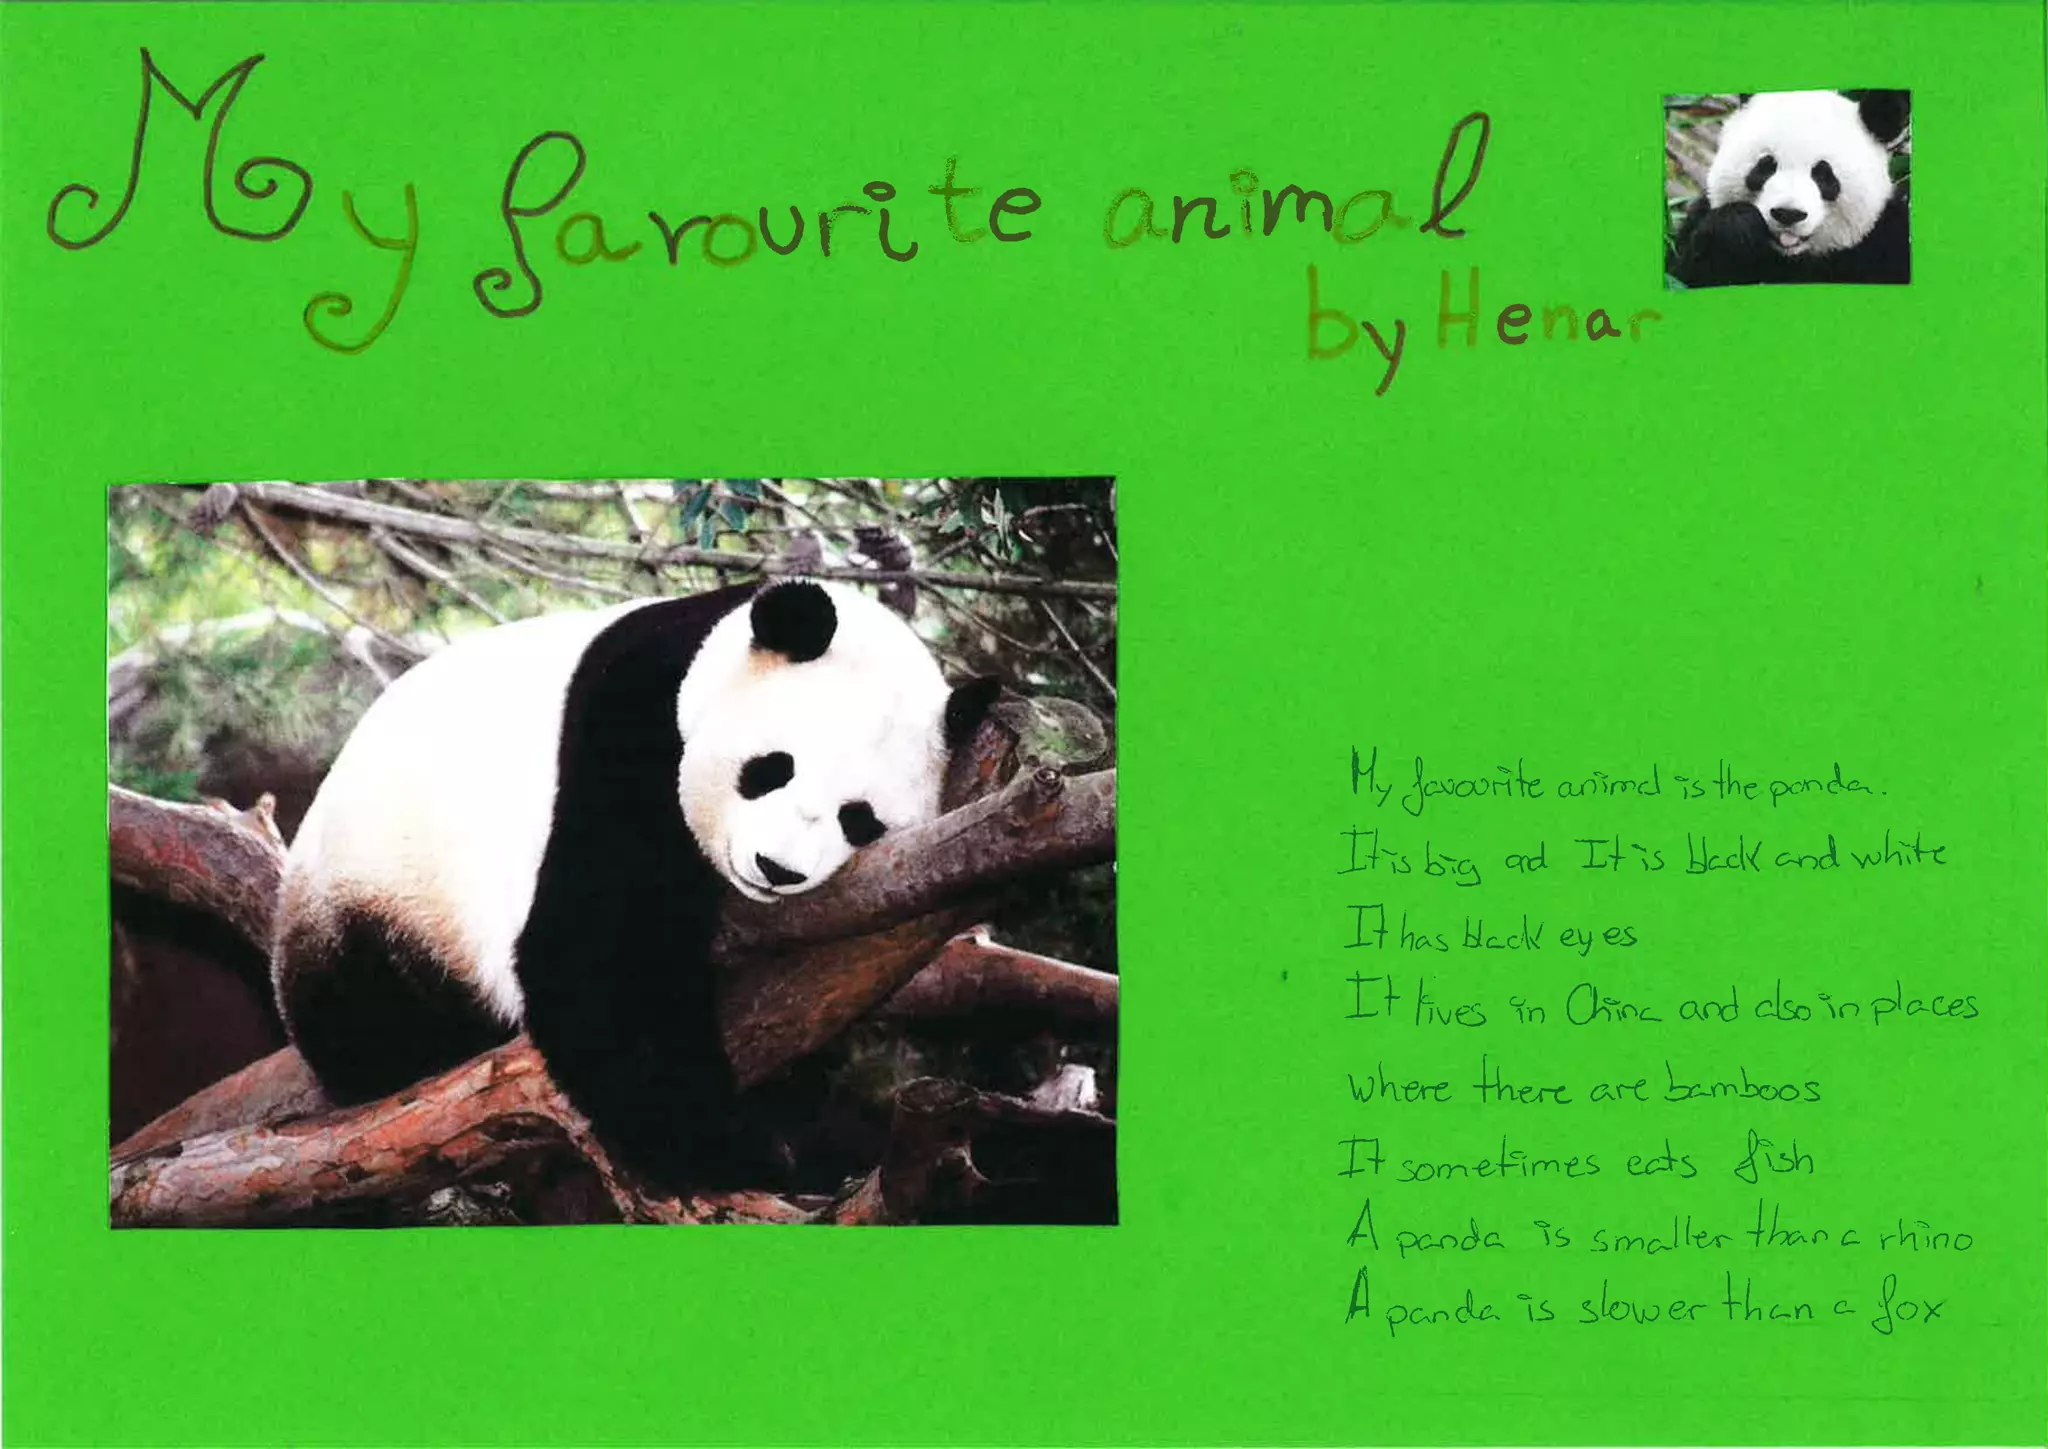 My favourite animal
by Henar
My favourite animal is the panda.
It is big and It is black and white
It has black eyes
It lives in China and also in places
where there are bamboos
It sometimes eats fish
A panda is smaller than a rhino
A panda is slower than a fox